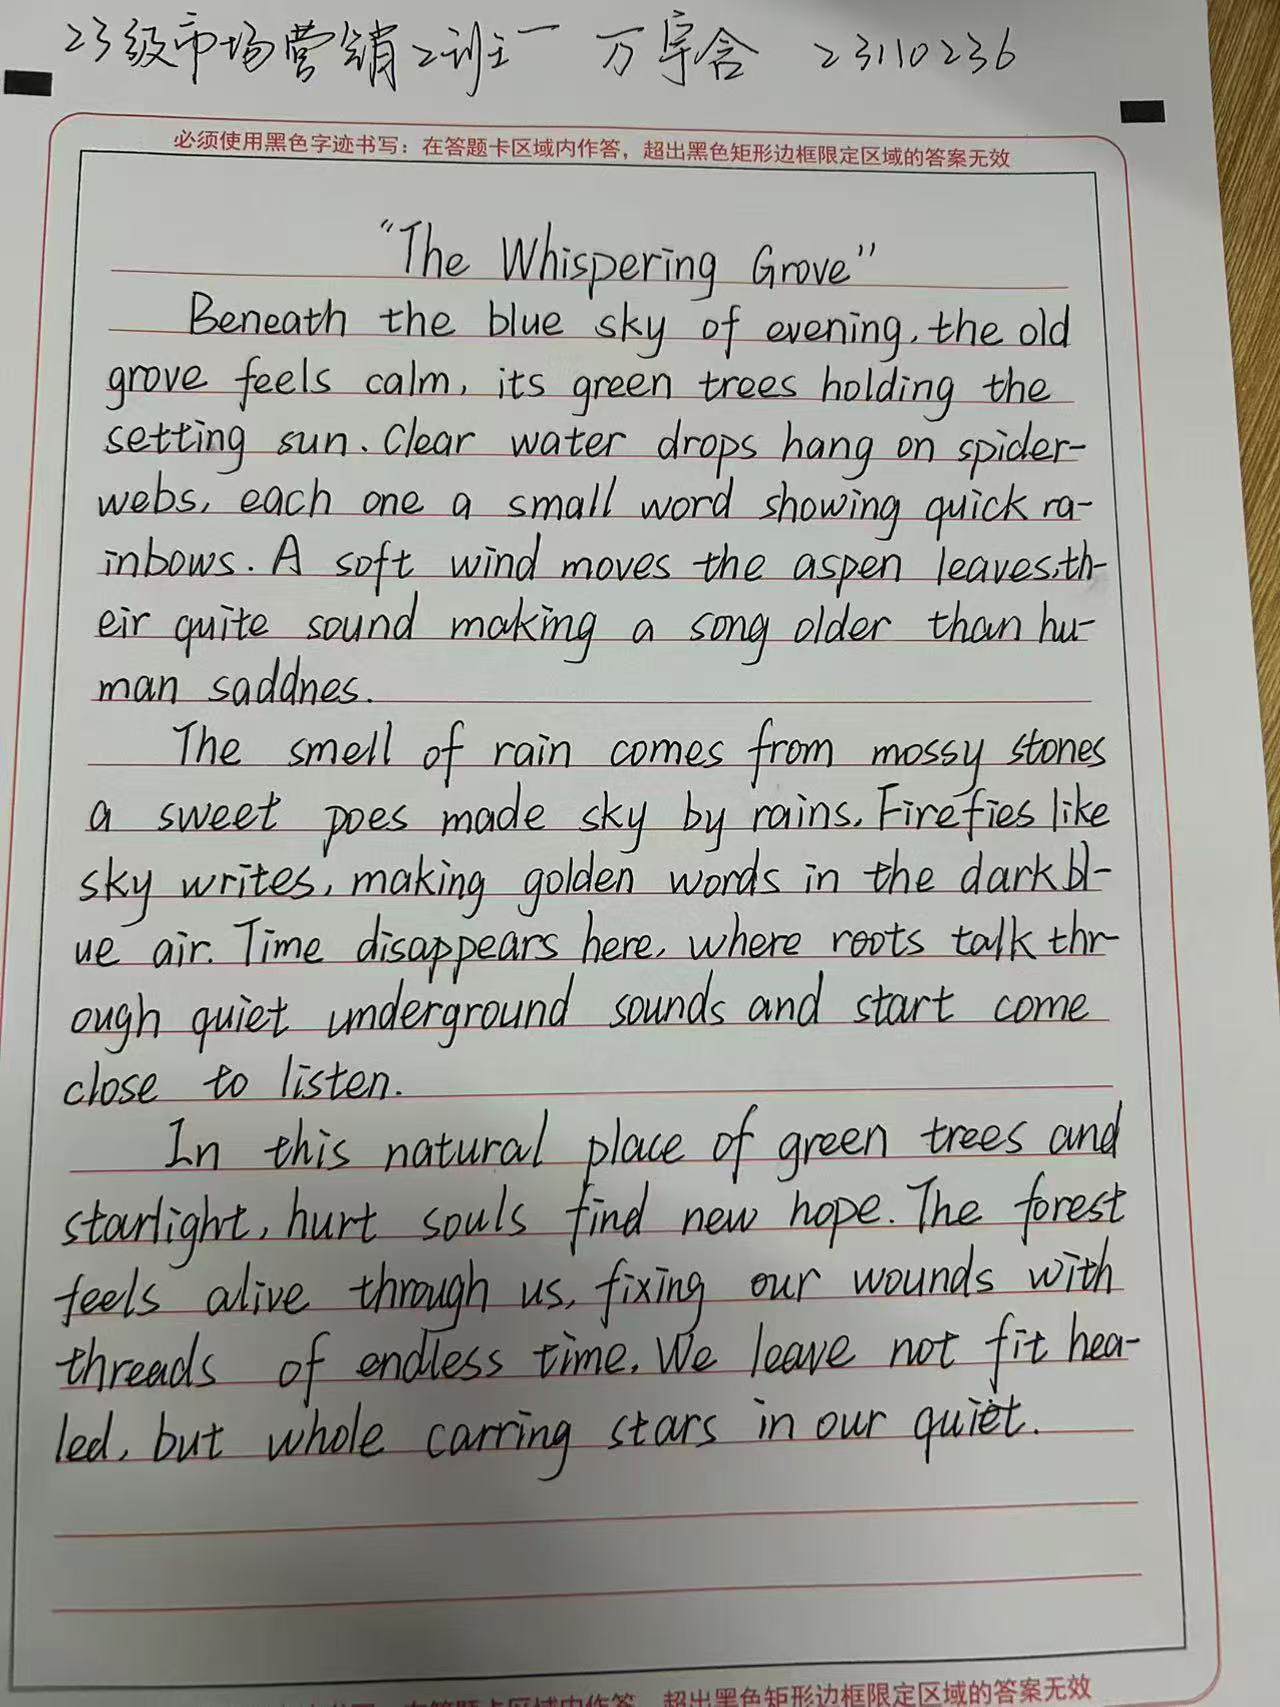 23级市场营销2班 万宇含 23110236
必须使用黑色字迹书写：在答题卡区域内作答，超出黑色矩形边框限定区域的答案无效
"The Whispering Grove"
Beneath the blue sky of evening, the old
grove feels calm, its green trees holding the
setting sun. Clear water drops hang on spider-
webs, each one a small word showing quick ra-
inbows. A soft wind moves the aspen leaves, th-
eir quite sound making a song older than hu-
man saddnes.
The smell of rain comes from mossy stones
a sweet poes made sky by rains. Firefies like
sky writes, making golden words in the dark bl-
ue air. Time disappears here, where roots talk thr-
ough quiet underground sounds and start come
close to listen.
In this natural place of green trees and
starlight, hurt souls find new hope. The forest
feels alive through us, fixing our wounds with
threads of endless time. We leave not fit hea-
led, but whole carring stars in our quiet.
在答题卡区域内作答，超出黑色矩形边框限定区域的答案无效